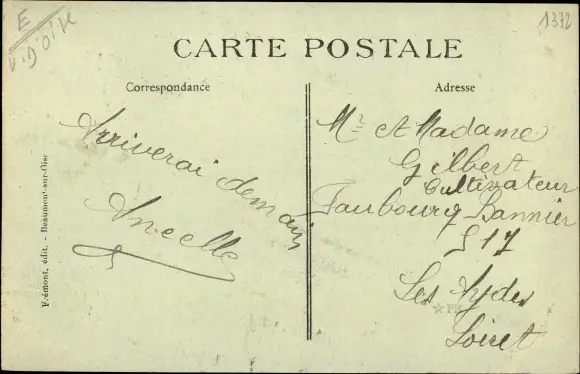 E
V. DOISE
1372
CARTE POSTALE
Correspondance
Adresse
Arriverai demain
Frémont, édit. - Beaumont-sur-Oise
Mr et Madame
Gilbert
Cultivateur
Faubourg Bannier
517
Les Aydes
Loiret